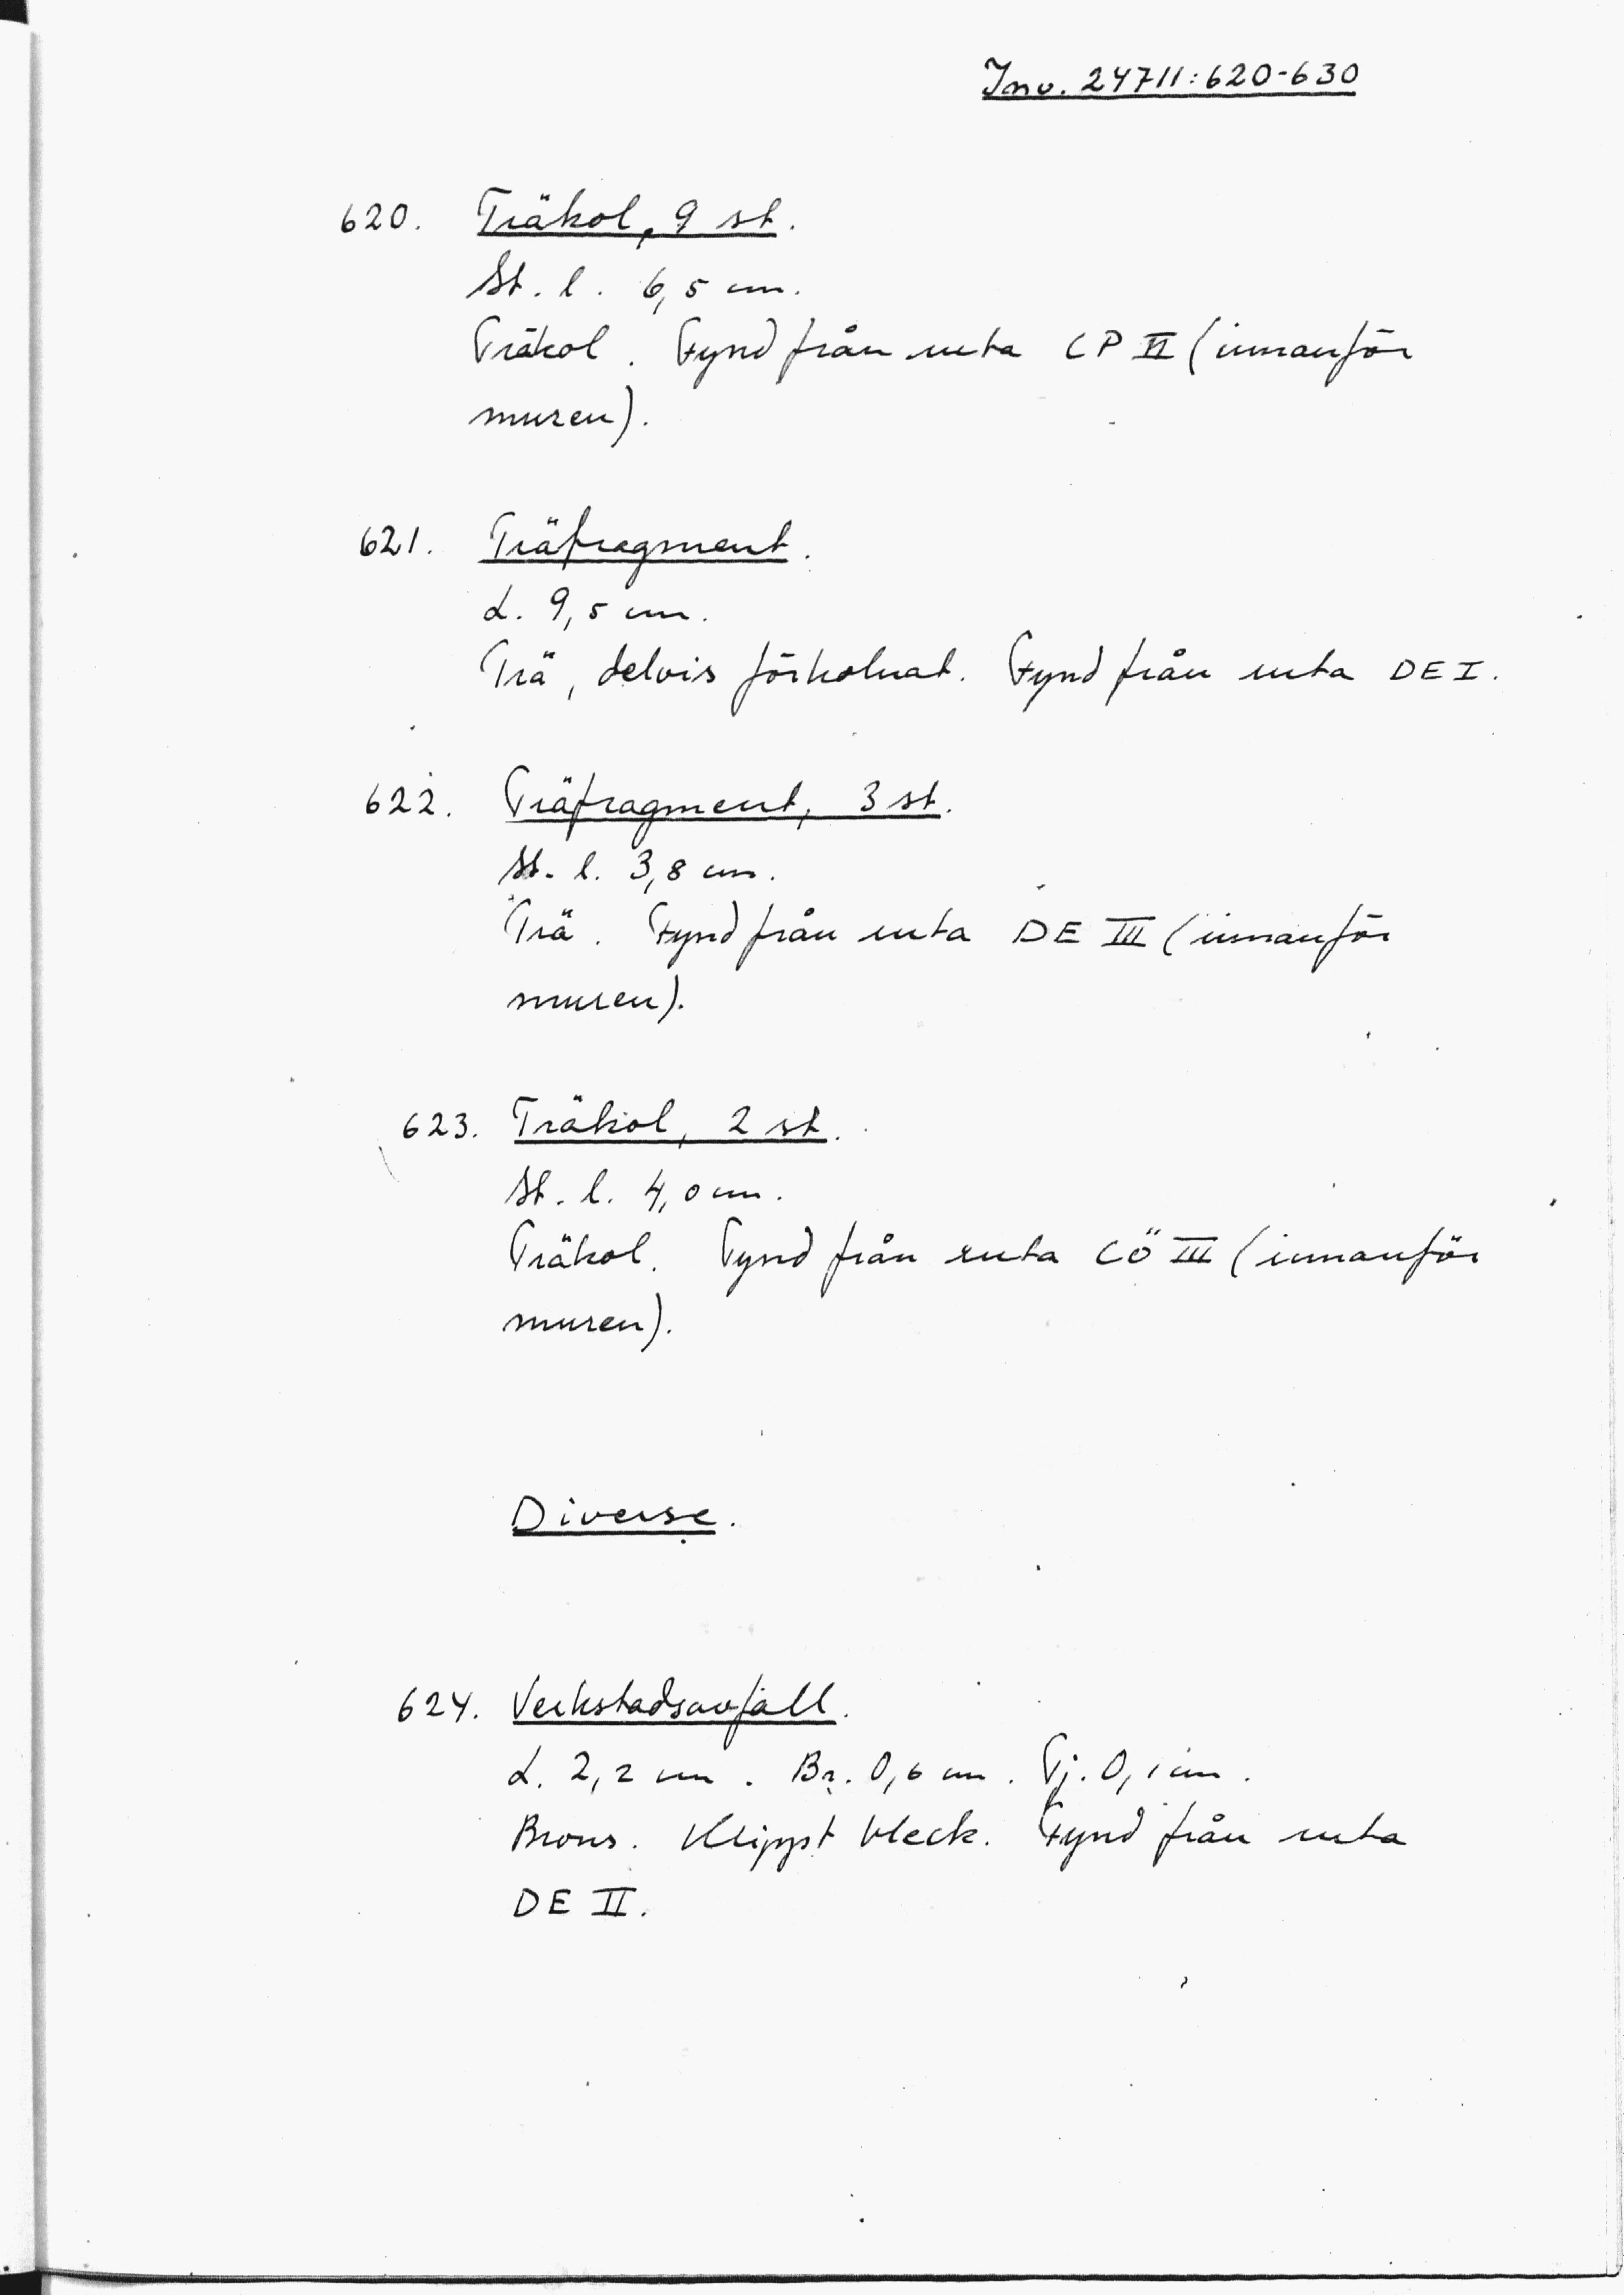 Inv. 24711:620-630
620. Träkol, 9 st.
St. l. 6,5 cm.
Träkol. Fynd från ruta CP II (innanför
muren).
621. Träfragment.
L. 9,5 cm.
Trä, delvis förkolnat. Fynd från ruta DE I.
622. Träfragment, 3 st.
St. l. 3,8 cm.
Trä. Fynd från ruta DE III (innanför
muren).
623. Träkol, 2 st.
St. l. 4,0 cm.
Träkol. Fynd från ruta CÖ III (innanför
muren).
Diverse.
624. Verkstadsavfall.
L. 2,2 cm. Br. 0,6 cm. Tj. 0,1 cm.
Brons. Klippt bleck. Fynd från ruta
DE II.